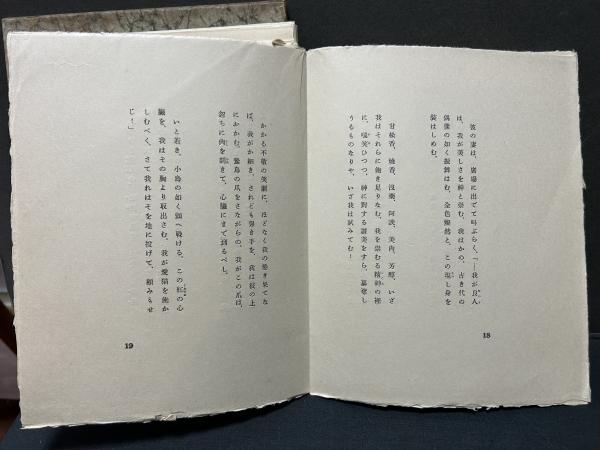 彼の妻は、廣場に出でて叫ぶらく、「――我が良人
は、我が美しさを神と崇む、我はかの、古き代の
偶像の如く振舞はむ。金色燦然と、この現し身を
裝はしめむ。
甘松香、燻香、沒藥、阿諛、美肉、芳醇、いざ
我はそれらに飽き足りなむ。我を崇むる精神の裡
に、嗤笑ひつつ、神に對する讃美をすら、簒奪し
うるものなりや、いざ我は試みてむ！
18
かかる不敬の笑劇に、ほどなく我の倦き果てな
ば、我がか細き、されども強き手を、我は彼の上
におかむ。鷲鳥の爪をさながらの、我がこの爪は、
忽ちに肉を劈きて、心臟にまで到るべし。
いと若き、小鳥の如く顫へ戰ける、この紅の心
臟を、我はその胸より取出さむ。我が愛猫を飽か
しむべく、さて我れはそを地に投げて、顧みもせ
じ！」
19